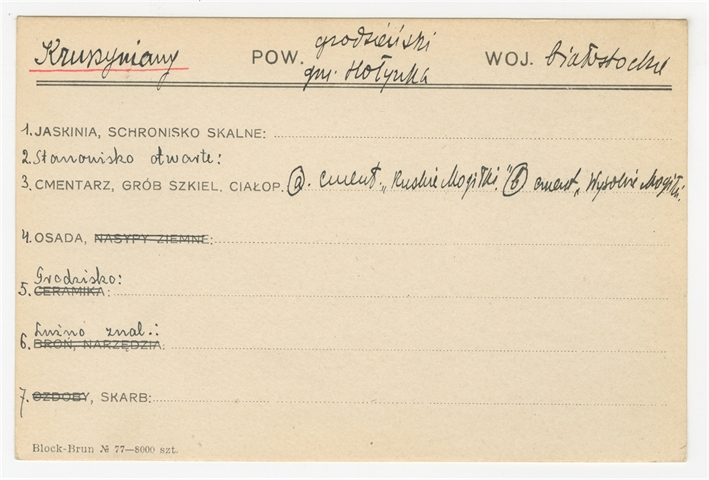 Kruszyniany POW. grodzieński WOJ. białostockie
gm. Hołynka
1. JASKINIA, SCHRONISKO SKALNE:
2. Stanowisko otwarte:
3. CMENTARZ, GRÓB SZKIEL. CIAŁOP. a. cment. „Ruskie Mogiłki" b cment „Wysokie Mogiłki.
4. OSADA, NASYPY ZIEMNE:
Grodzisko:
5. CERAMIKA:
Luźno znal.:
6. BROŃ, NARZĘDZIA:
7. OZDOBY, SKARB:
Block-Brun № 77—8000 szt.